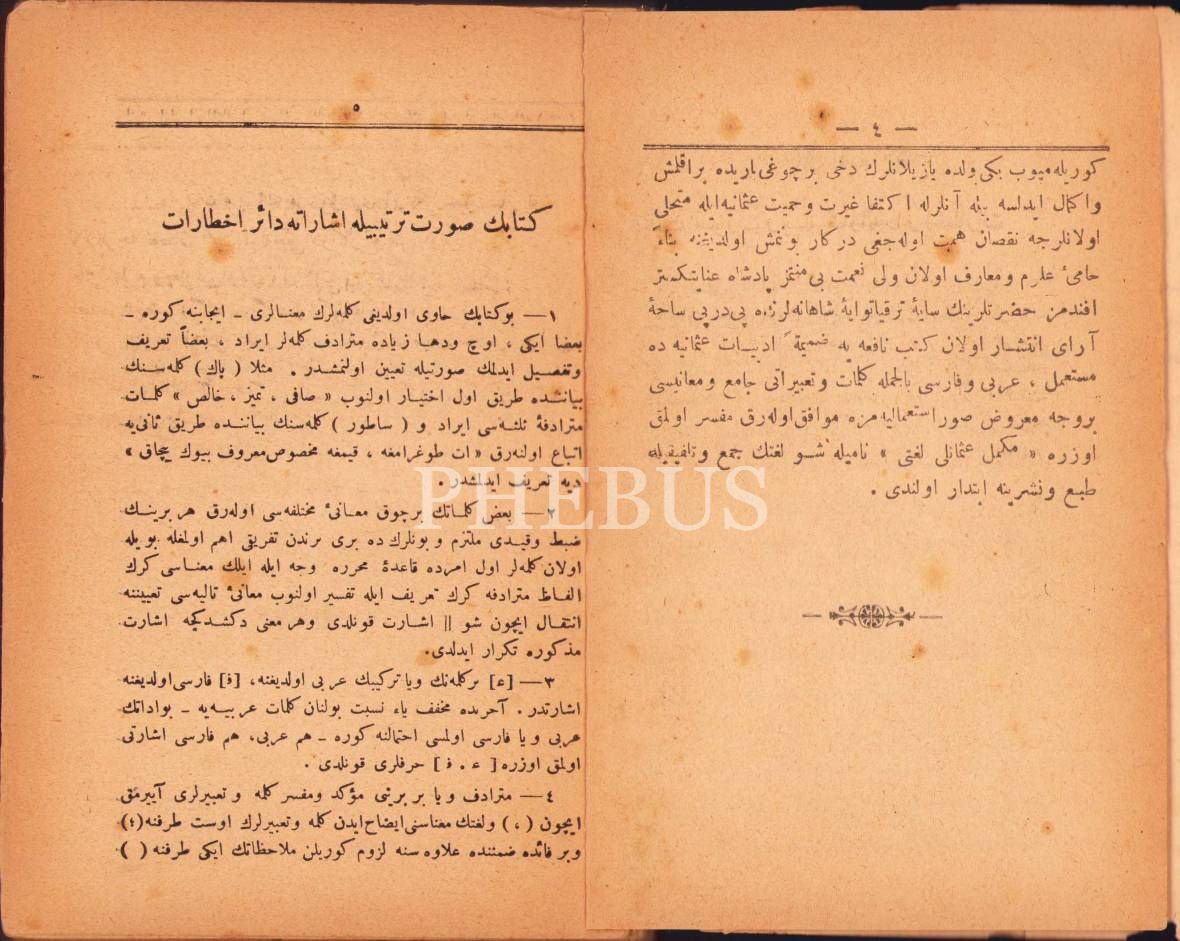 — ٤ —
كوريله ميوب يكى ولده يازيلانلرك دخى برچوغى ياريده براقلمش
واكمال ايدلسه بيله آنلرله اكتفا غيرت وحميت عثمانيه ايله متحلى
اولانلرجه نقصان همت اوله جغى دركار بونمش اولديغنه بناءً
حامئ علوم ومعارف اولان ولى نعمت بى منتمز پادشاه عنايتكستر
افندمز حضرتلرينك سايۀ ترقياتوايۀ شاهانه لرنده پى درپى ساحۀ
آراى انتشار اولان كتب نافعه يه ضميمةً ادبيات عثمانيه ده
مستعمل ، عربى وفارسى بالجمله كلمات وتعبيراتى جامع ومعانيسى
بروجه معروض صور استعماليه مزه موافق اوله رق مفسر اولمق
اوزره « مكمل عثمانلى لغتى » ناميله شو لغتك جمع وتلفيقيله
طبع ونشرينه ابتدار اولندى .
٥
كتابك صورت ترتيبيله اشاراته دائر اخطارات
١— بوكتابك حاوى اولديغى كلمه لرك معنالرى ـ ايجابنه كوره ـ
بعضا ايكى ، اوچ ودها زياده مترادف كلمه لر ايراد ، بعضاً تعريف
وتفصيل ايدلمك صورتيله تعيين اولنمشدر . مثلا ( پاك ) كلمه سنك
بياننده طريق اول اختيار اولنوب « صافى ، تميز ، خالص » كلمات
مترادفۀ ثلثه سى ايراد و ( ساطور ) كلمه سنك بياننده طريق ثانى يه
اتباع اولنه رق « ات طوغرامغه ، قيمغه مخصوص معروف بيوك بيچاق »
ديه تعريف ايدلمشدر .
٢— بعض كلماتك برچوق معانئ مختلفه سى اوله رق هر برينك
ضبط وقيدى ملتزم و بونلرك ده برى برندن تفريقى اهم اولمغله بويله
اولان كلمه لر اول امرده قاعدۀ محرره وجه ايله ايلك معناسى كرك
الفاظ مترادفه كرك تعريف ايله تفسير اولنوب معانئ تاليه سى تعييننه
انتقال ايچون شو || اشارت قونلدى وهر معنى دكشدكجه اشارت
مذكوره تكرار ايدلدى.
٣— [ع] بركلمه نك ويا تركيبك عربى اولديغنه، [ف] فارسى اولديغنه
اشارتدر . آخرنده مخفف ياء نسبت بولنان كلمات عربيه يه ـ بواداتك
عربى ويا فارسى اولمسى احتمالنه كوره ـ هم عربى، هم فارسى اشارتى
اولمق اوزره [ ع . ف ] حرفلرى قونلدى .
٤— مترادف ويا بر برينى مؤكد ومفسر كلمه و تعبيرلرى آييرمق
ايچون ( ، ) ولغتك معناسنى ايضاح ايدن كلمه وتعبيرلرك اوست طرفنه (؛)
وبر فائده ضمننده علاوه سنه لزوم كوريلن ملاحظاتك ايكى طرفنه ( )
PHEBUS